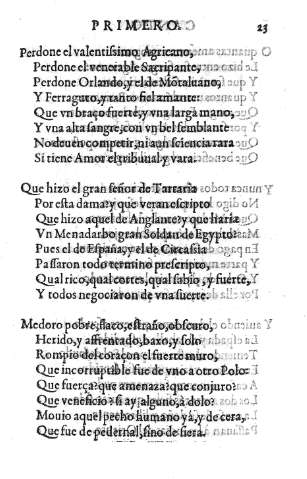 PRIMERO. 23
Perdone el valentissimo Agricano,
Perdone el venerable Sacripante,
Perdone Orlando, y el de Mōtaluano,
Y Ferraguto, y tanto fiel amante:
Que vn braço fuerte, y vna larga mano,
Y vna alta sangre, con vn bel semblante
No deuẽ competir, ni aun sciencia rara
Si tiene Amor el tribunal y vara.
Que hizo el gran señor de Tartaria
Por esta dama? y que veran escripto
Que hizo aquel de Anglante? y que haria
Vn Menadarbo gran Soldan de Egypto?
Pues el de España, y el de Circassia
Passaron todo termino prescripto,
Qual rico, qual cortes, qual sabio, y fuerte,
Y todos negociaron de vna suerte.
Medoro pobre, flaco, estraño, obscuro,
Herido, y affrentado, baxo, y solo
Rompio del coraçon el fuerte muro,
Que incorruptable fue de vno a otro Polo:
Que fuerça? que amenaza? que conjuro?
Que veneficio? si ay alguno, à dolo?
Mouio aquel pecho humano ya, y de cera,
Que fue de pedernal, sino de fiera.